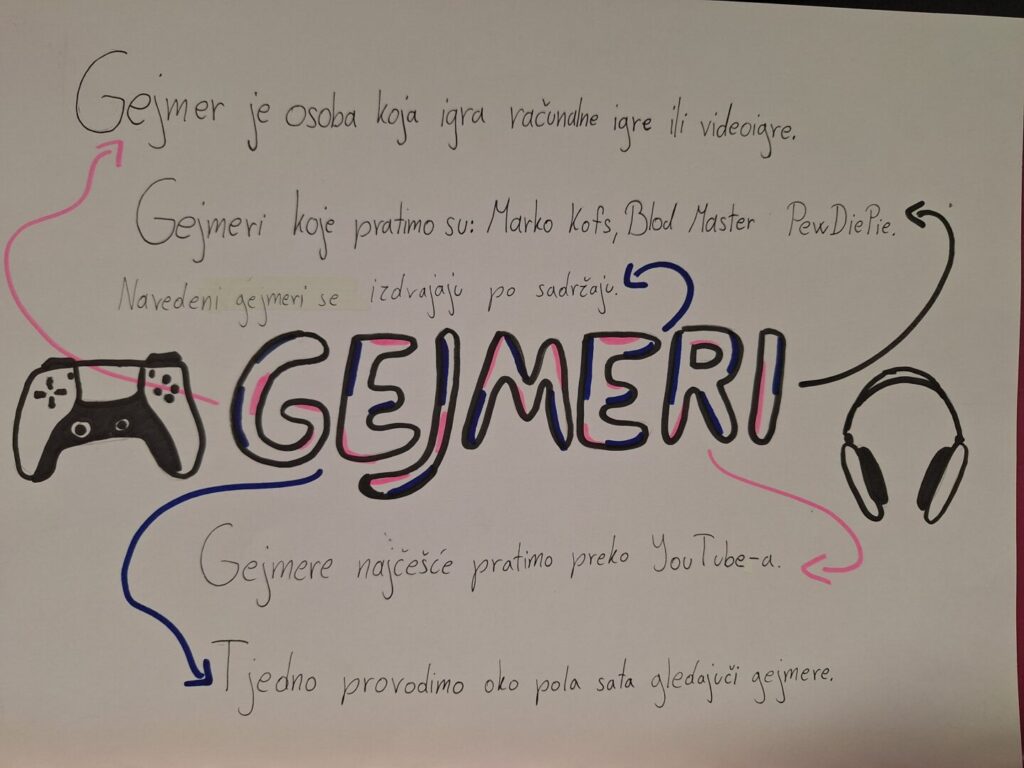 Gejmer je osoba koja igra računalne igre ili videoigre.
Gejmeri koje pratimo su: Marko Kofs, Blod Master PewDiePie.
Navedeni gejmeri se izdvajaju po sadržaju.
GEJMERI
Gejmere najčešće pratimo preko YouTube-a.
Tjedno provodimo oko pola sata gledajuči gejmere.